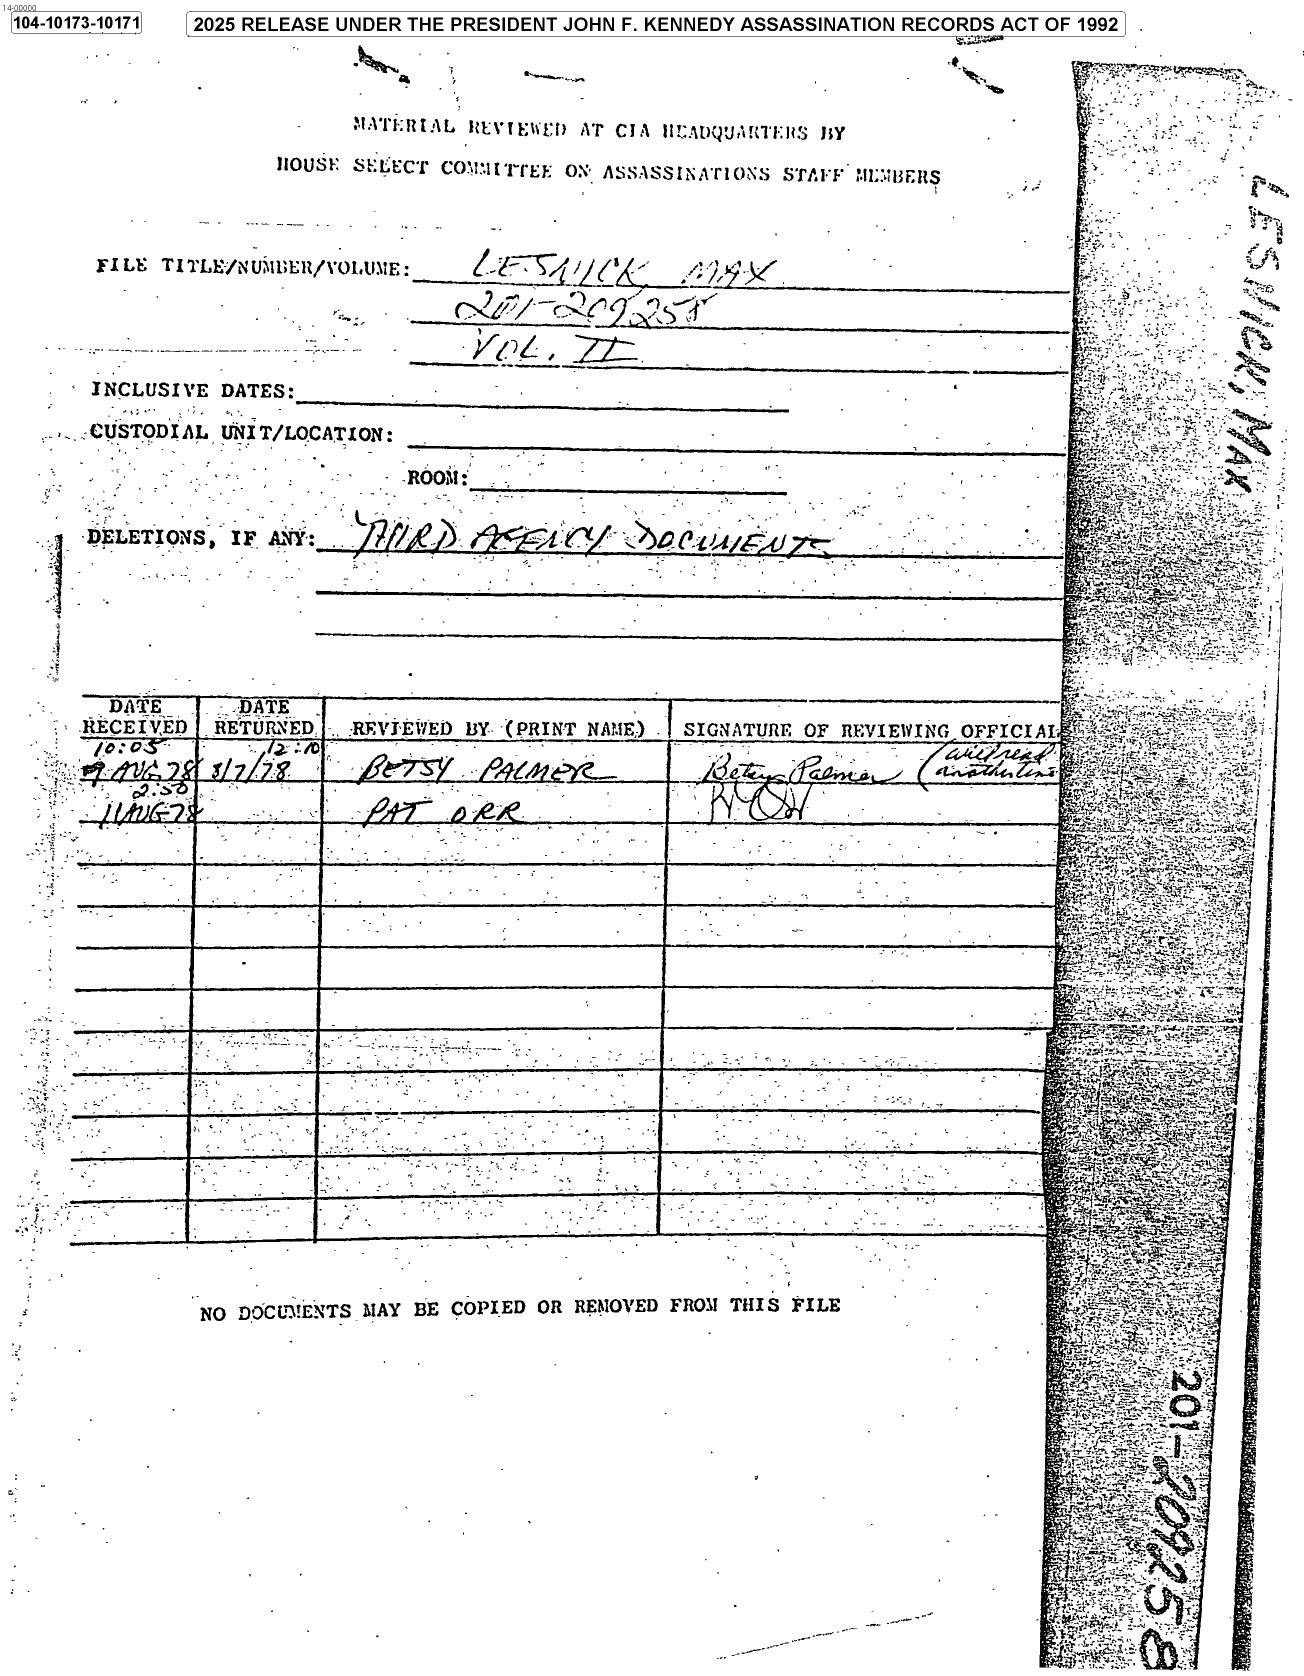 14-00000
104-10173-10171
2025 RELEASE UNDER THE PRESIDENT JOHN F. KENNEDY ASSASSINATION RECORDS ACT OF 1992
MATERIAL REVIEWED AT CIA HEADQUARTERS BY
HOUSE SELECT COMMITTEE ON ASSASSINATIONS STAFF MEMBERS
FILE TITLE/NUMBER/VOLUME: LESNICK MAX
201-209258
VOL. II
INCLUSIVE DATES:
CUSTODIAL UNIT/LOCATION:
ROOM:
DELETIONS, IF ANY: THIRD AGENCY DOCUMENTS
DATE RECEIVED DATE RETURNED REVIEWED BY (PRINT NAME) SIGNATURE OF REVIEWING OFFICIAL
10:05 12:10 (will read
9 AUG 78 8/7/78 BETSY PALMER Betsy Palmer another time
2:50
11 AUG 78 PAT ORR
NO DOCUMENTS MAY BE COPIED OR REMOVED FROM THIS FILE
LESNICK, MAX
201-209258